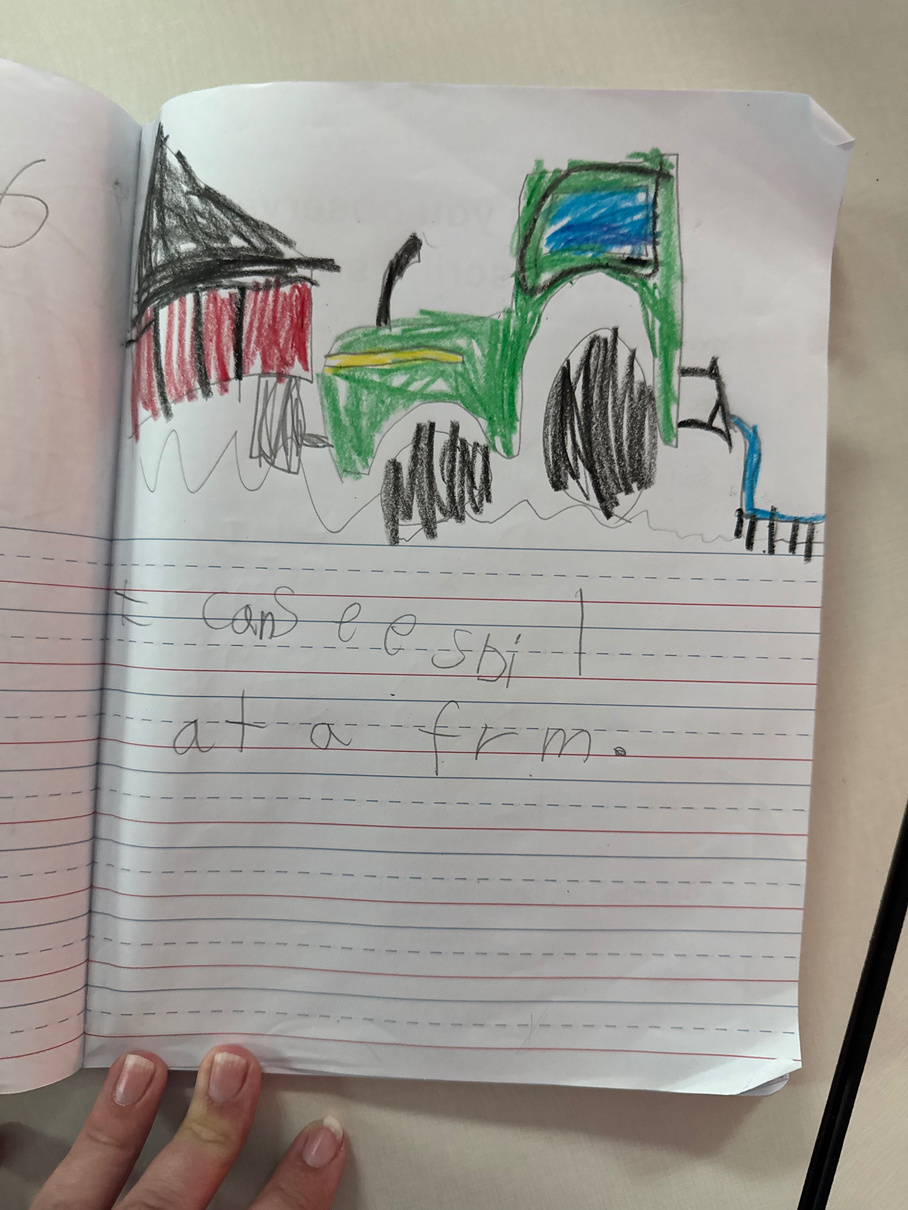 6
I can see sbil
at a frm.